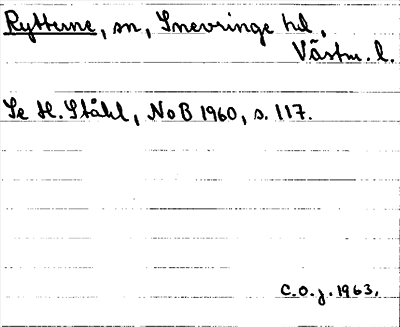 Rytterne, sn, Snevringe hd,
Västm. l.
Se H. Ståhl, NoB 1960, s. 117.
C.O.J. 1963.